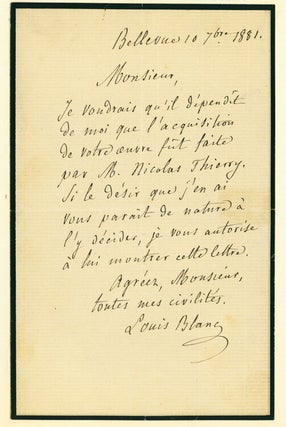 Bellevue 10 7bre 1881.
Monsieur,
Je voudrais qu'il dépendît
de moi que l'acquisition
de votre œuvre fût faite
par M. Nicolas Thierry.
Si le désir que j'en ai
vous paraît de nature à
l'y décider, je vous autorise
à lui montrer cette lettre.
Agréez, Monsieur,
toutes mes civilités.
Louis Blanc